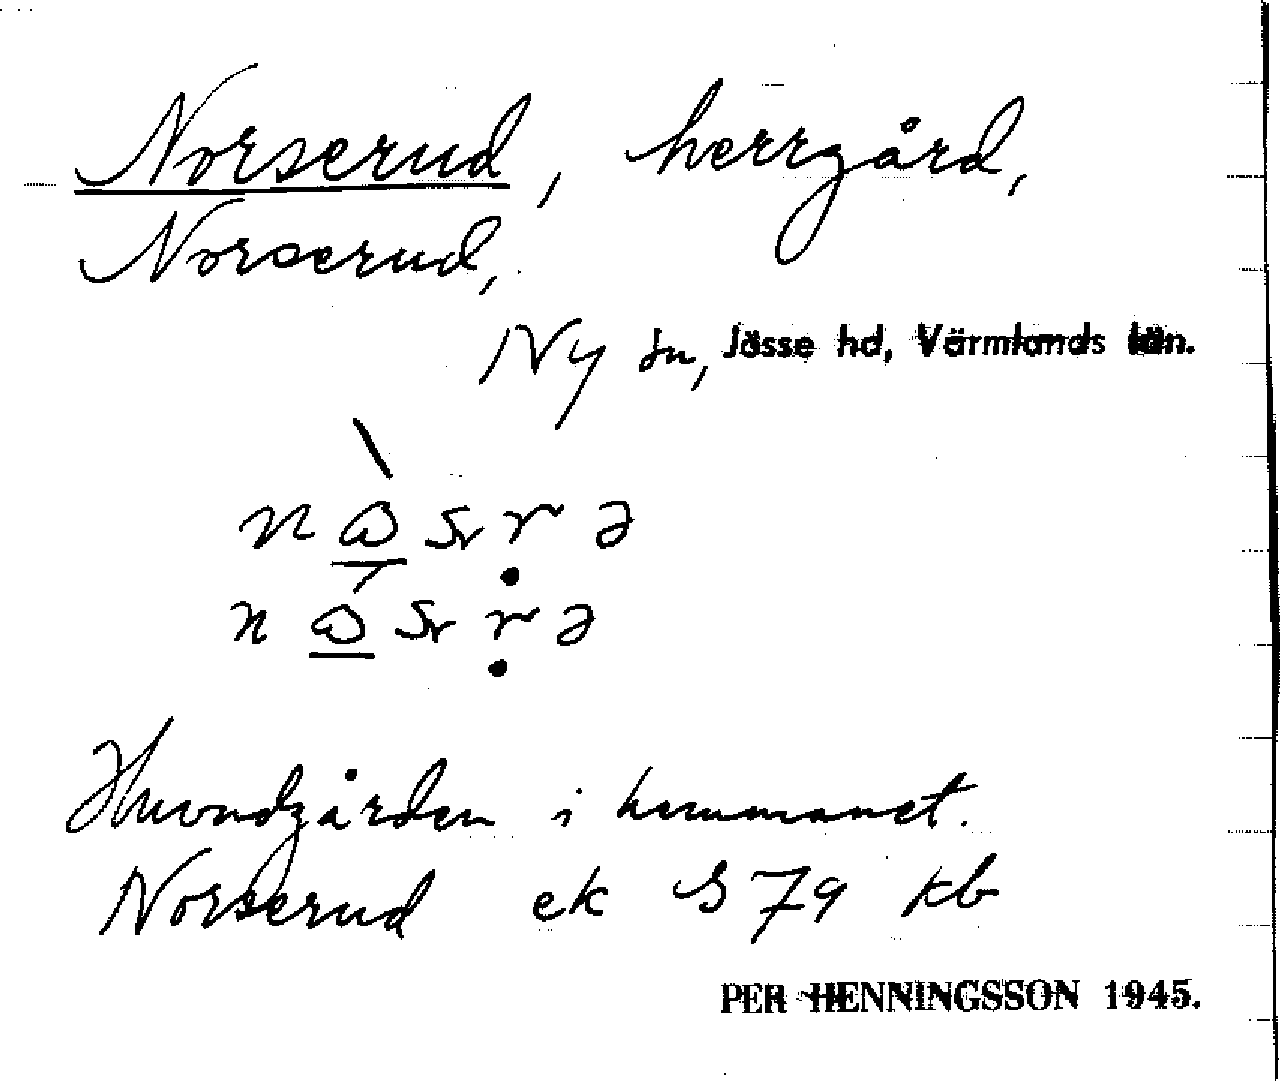 Norserud, herrgård,
Norserud,
Ny sn, Jösse hd, Värmlands län.
Huvudgården i hemmanet.
Norserud ek S 7g kb
PER HENNINGSSON 1945.